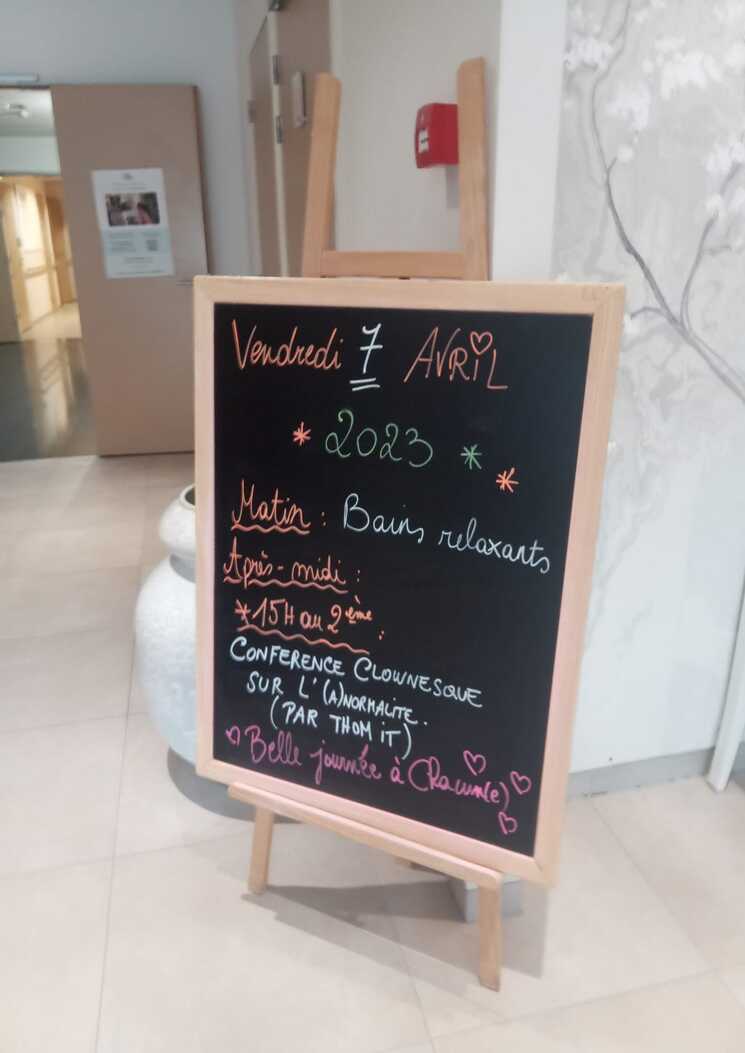 Vendredi 7 AVRiL
* 2023 * *
Matin : Bains relaxants
Après-midi :
* 15H au 2ème :
CONFERENCE CLOWNESQUE
SUR L'(A)NORMALITE.
(PAR THOM IT)
Belle journée à Chacun(e)